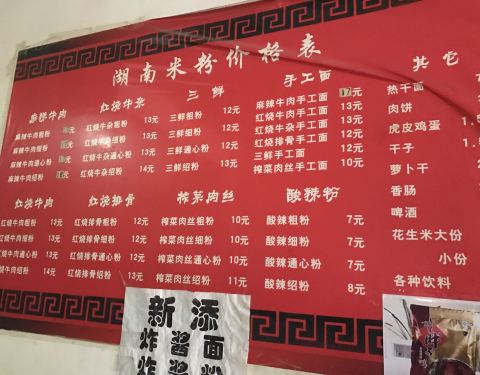 湖南米粉价格表
麻辣牛肉
麻辣牛肉粗粉
麻辣牛肉细粉
麻辣牛肉通心粉
麻辣牛肉绍粉
红烧牛杂
红烧牛杂粗粉 13元
红烧牛杂细粉 13元
红烧牛杂通心粉 13元
红烧牛杂绍粉 14元
三鲜
三鲜粗粉 12元
三鲜细粉 12元
三鲜通心粉 12元
三鲜绍粉 13元
手工面
麻辣牛肉手工面 元
红烧牛肉手工面 13元
红烧牛杂手工面 13元
红烧排骨手工面 12元
三鲜手工面 12元
榨菜肉丝手工面 10元
其它
热干面
肉饼
虎皮鸡蛋
干子
萝卜干
香肠
啤酒
花生米大份
小份
各种饮料
红烧牛肉
红烧牛肉粗粉 13元
红烧牛肉细粉 13元
红烧牛肉通心粉 13元
红烧牛肉绍粉 14元
红烧排骨
红烧排骨粗粉 12元
红烧排骨细粉 12元
红烧排骨通心粉 12元
红烧排骨绍粉 13元
榨菜肉丝
榨菜肉丝粗粉 10元
榨菜肉丝细粉 10元
榨菜肉丝通心粉 10元
榨菜肉丝绍粉 11元
酸辣粉
酸辣粗粉 7元
酸辣细粉 7元
酸辣通心粉 7元
酸辣绍粉 8元
新添
炸酱面
炸酱粉